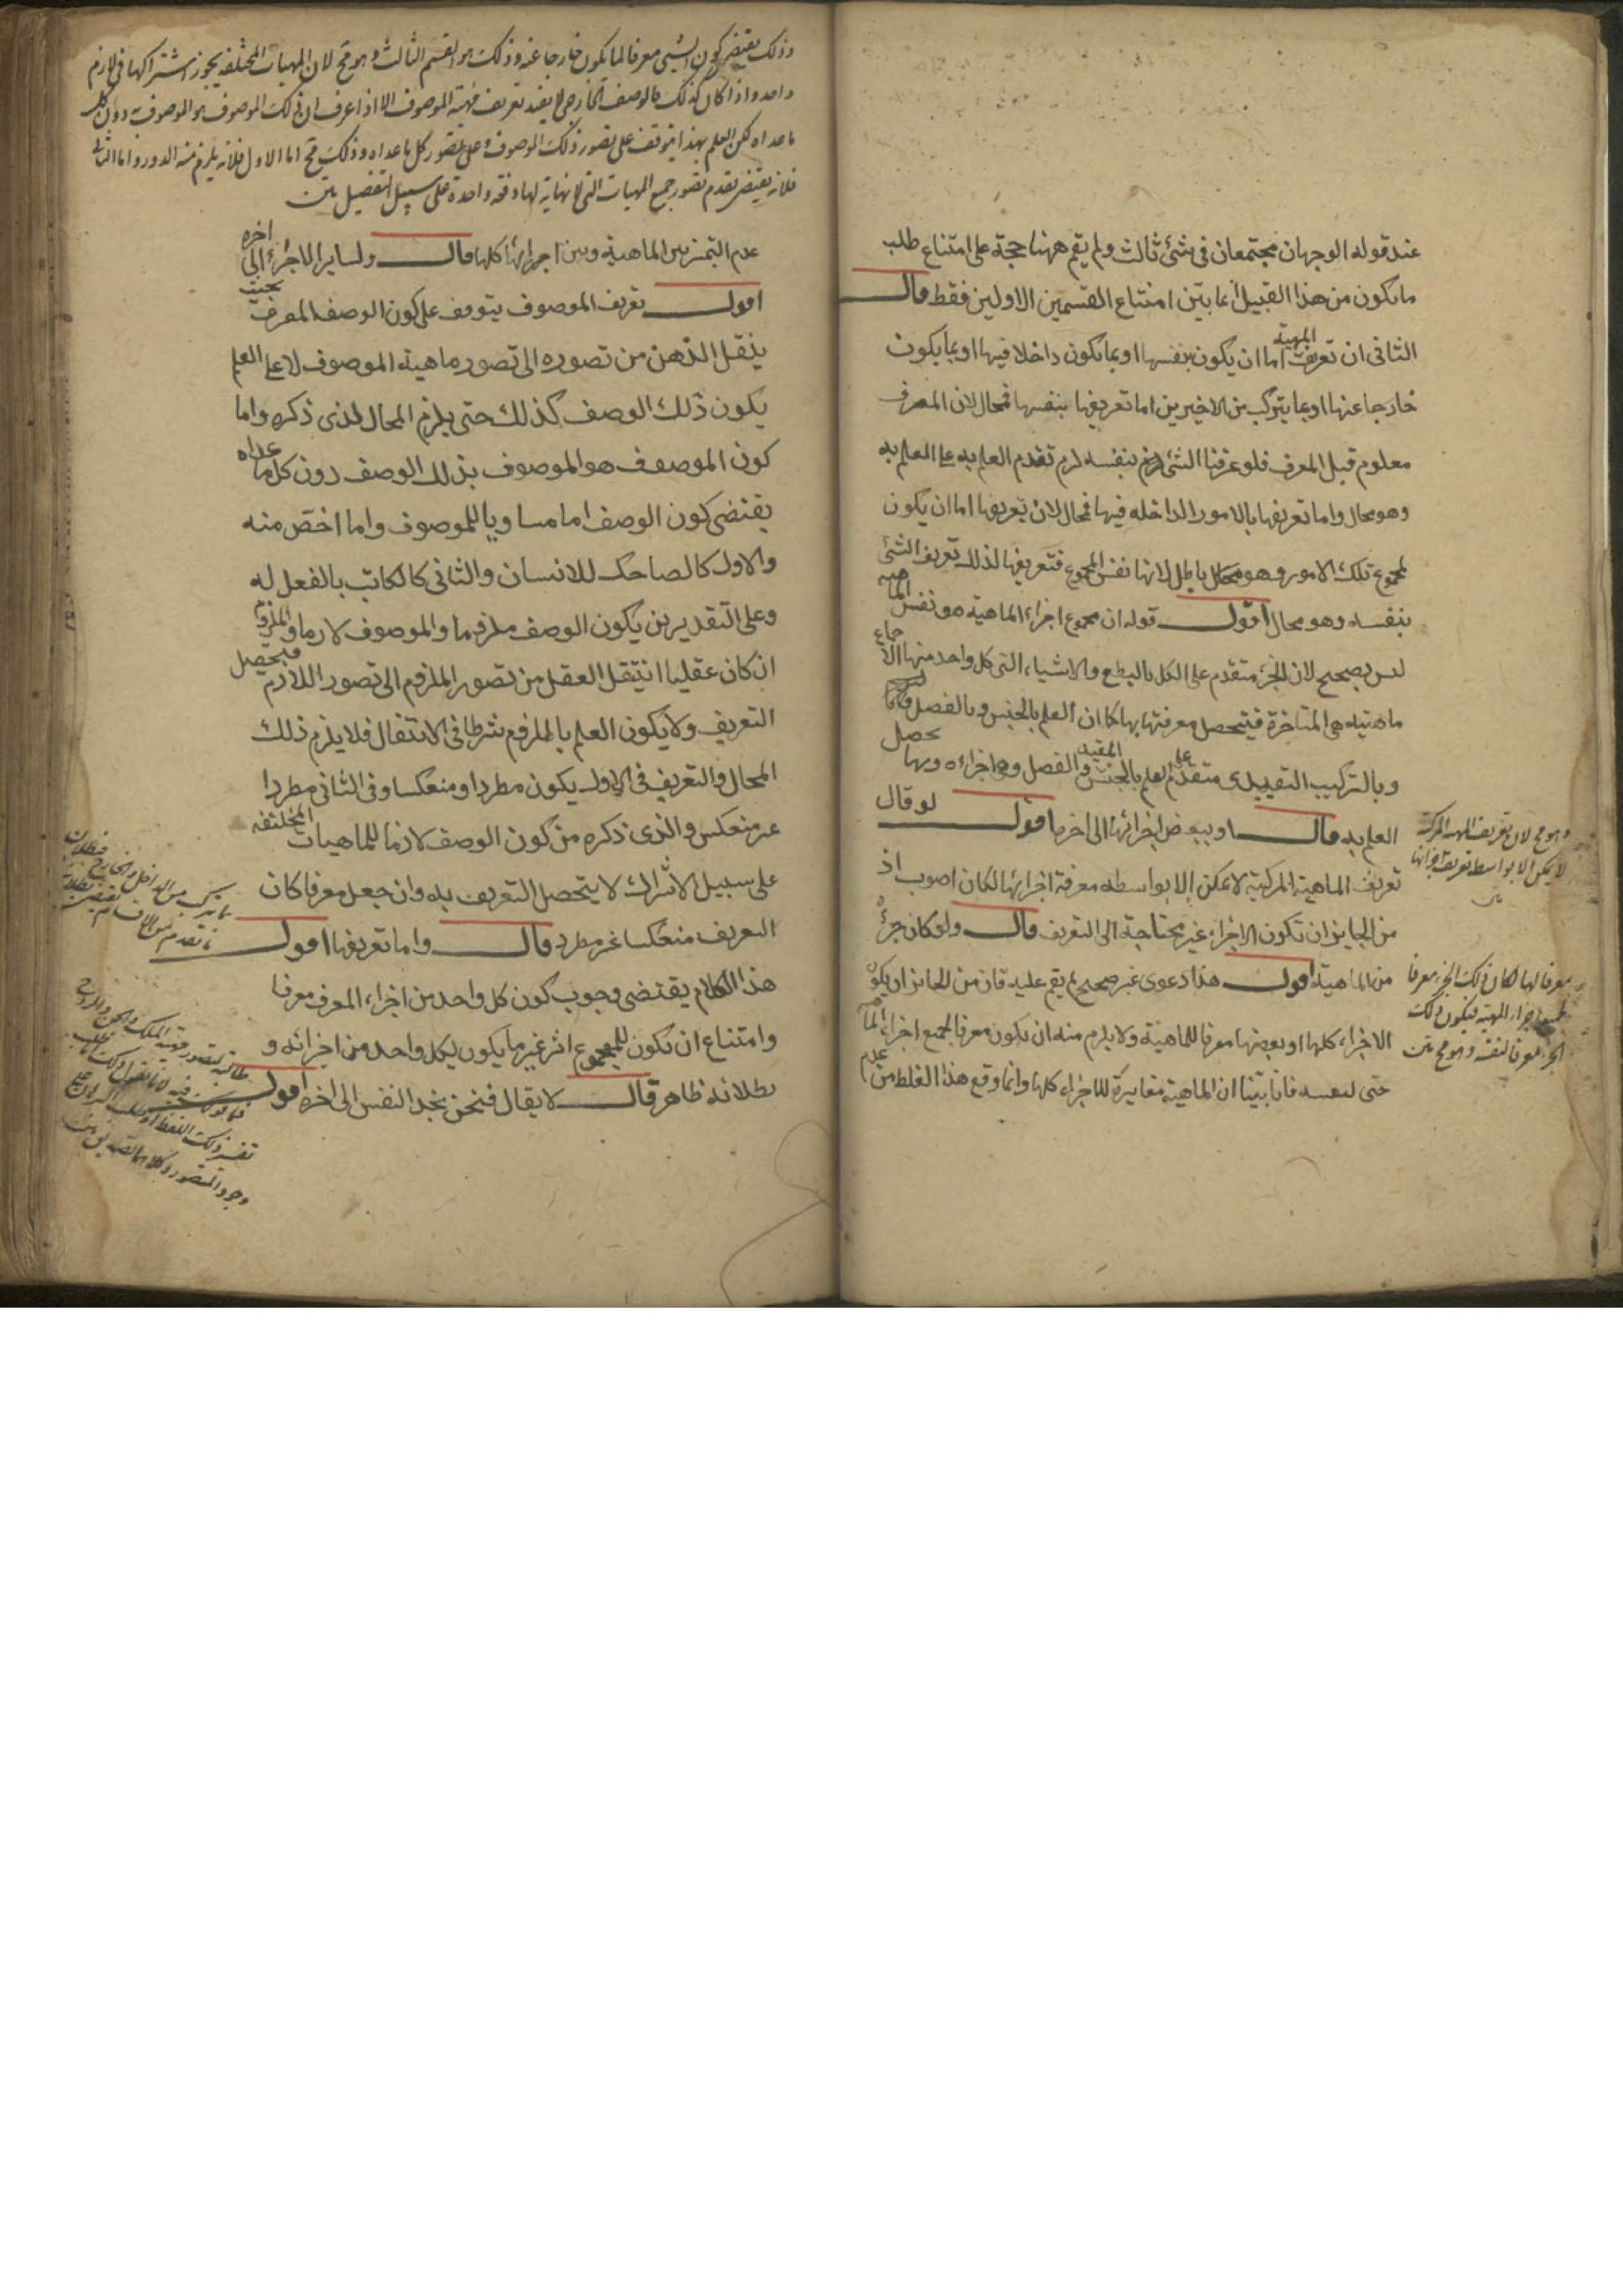 عند قوله الوجهان مجتمعان فى شئ ثالث ولم يقم ههنا حجة على امتناع طلب
ما يكون من هذا القبيل انما بيّن امتناع القسمين الاولين فقط قال
الثانى ان تعريف المهية اما ان يكون بنفسها او بما يكون داخلا فيها او بما يكون
خارجا عنها او بما يتركب من الاخيرين اما تعريفها بنفسها فمحال لان المعرف
معلوم قبل المعرف فلو عرفنا الشئ بنفسه لزم تقدم العلم به على العلم به
وهو محال واما تعريفها بالامور الداخله فيها فمحال لان تعريفها اما ان يكون
لمجموع تلك الامور وهو باطل لانها نفس المجموع فتعريفها لذلك تعريف الشئ
بنفسه وهو محال اقول قوله ان مجموع اجزاء الماهية هو نفس الماهيه
ليس بصحيح لان الجزء متقدم على الكل بالطبع والاشياء التى كل واحد منها
ماهيته هى المتاخرة فيتحصل معرفتها بها كما ان العلم بالجنس وبالفصل
وبالتركيب التقييدى متقدم على العلم بالجنس المقيد والفصل وهى اجزاءه وبها يحصل
العلم به قال او ببعض اجزائها الى اخره اقول لو قال
تعريف الماهية المركبة لا يمكن الا بواسطة معرفة اجزائها لكان اصوب اذ
من الجايز ان تكون الاجزاء غير محتاجة الى التعريف قال ولو كان جزءٌ
من الماهية اقول هذا دعوى غير صحيح لم يقم عليه فان من الجائز ان يكون
الاجزاء كلها او بعضها معرفا للماهية ولا يلزم منه ان يكون معرفا لجميع اجزاء الماهية
حتى لنفسه فانا بيّنا ان الماهية مغايرة للاجزاء كلها وانما وقع هذا الغلط من عدم
وهو مح لان تعريف المهية المركبة
لا يمكن الا بواسطة تعريف اجزائها
متن
معرفا لها لكان ذلك الجزء معرفا
لجميع اجزاء المهية فيكون ذلك
الجزء معرفا لنفسه وهو مح متن
وذلك يقتضى كون الشئ معرفا لما يكون خارجا عنه وذلك هو القسم الثالث وهو مح لان المهيات المختلفة يجوز اشتراكها فى لازم
واحد واذا كان كذلك فالوصف الخارجى لا يفيد تعريف مهية الموصوف الا اذا عرف ان ذلك الموصوف هو الموصوف به دون كل
ما عداه لكن العلم بهذا يتوقف على تصور ذلك الموصوف وعلى تصور كل ما عداه وذلك مح اما الاول فلانه يلزم منه الدور واما الثانى
فلانه يقتضى تقدم تصور جميع المهيات التى لا نهاية لها دفعة واحدة على سبيل التفصيل متن
عدم التميز بين الماهية وبين اجزائها كلها قال ولساير الاجزاء الى اخره
اقول تعريف الموصوف يتوقف على كون الوصف المعرف بحيث
ينقل الذهن من تصوره الى تصور ماهية الموصوف لا على العلم
بكون ذلك الوصف كذلك حتى يلزم المحال الذى ذكره واما
كون الموصوف هو الموصوف بذلك الوصف دون كل ما عداه
يقتضى كون الوصف اما مساويا للموصوف واما اخص منه
والاول كالضاحك للانسان والثانى كالكاتب بالفعل له
وعلى التقديرين يكون الوصف ملزوما والموصوف لازما والملزوم
ان كان عقليا انتقل العقل من تصور الملزوم الى تصور اللازم فيحصل
التعريف ولا يكون العلم بالملزوم شرطا فى الانتقال فلا يلزم ذلك
المحال والتعريف فى الاول يكون مطردا ومنعكسا وفى الثانى مطردا
غير منعكس والذى ذكره من كون الوصف لازما للماهيات المختلفه
على سبيل الاشراك لا يتحصل التعريف به وان جعل معرفا كان
التعريف منعكسا غير مطرد قال واما تعريفها اقول
هذا الكلام يقتضى وجوب كون كل واحد من اجزاء المعرف معرفا
وامتناع ان تكون للمجموع اثر غير ما يكون لكل واحد من اجزائه و
بطلانه ظاهر قال لا يقال فنحن نجد النفس الى اخره اقول
بما يتركب من الداخل والخارج فبطلان
ما تقدم من الاقسام يقتضى بطلانه
طالبة لتصور مهية الملك والجن والروح
فما قولك فيه لانا نقول ذلك اما طلب
تفسير ذلك اللفظ او طلب البرهان على
وجود المتصور وكلاهما تصديق متن